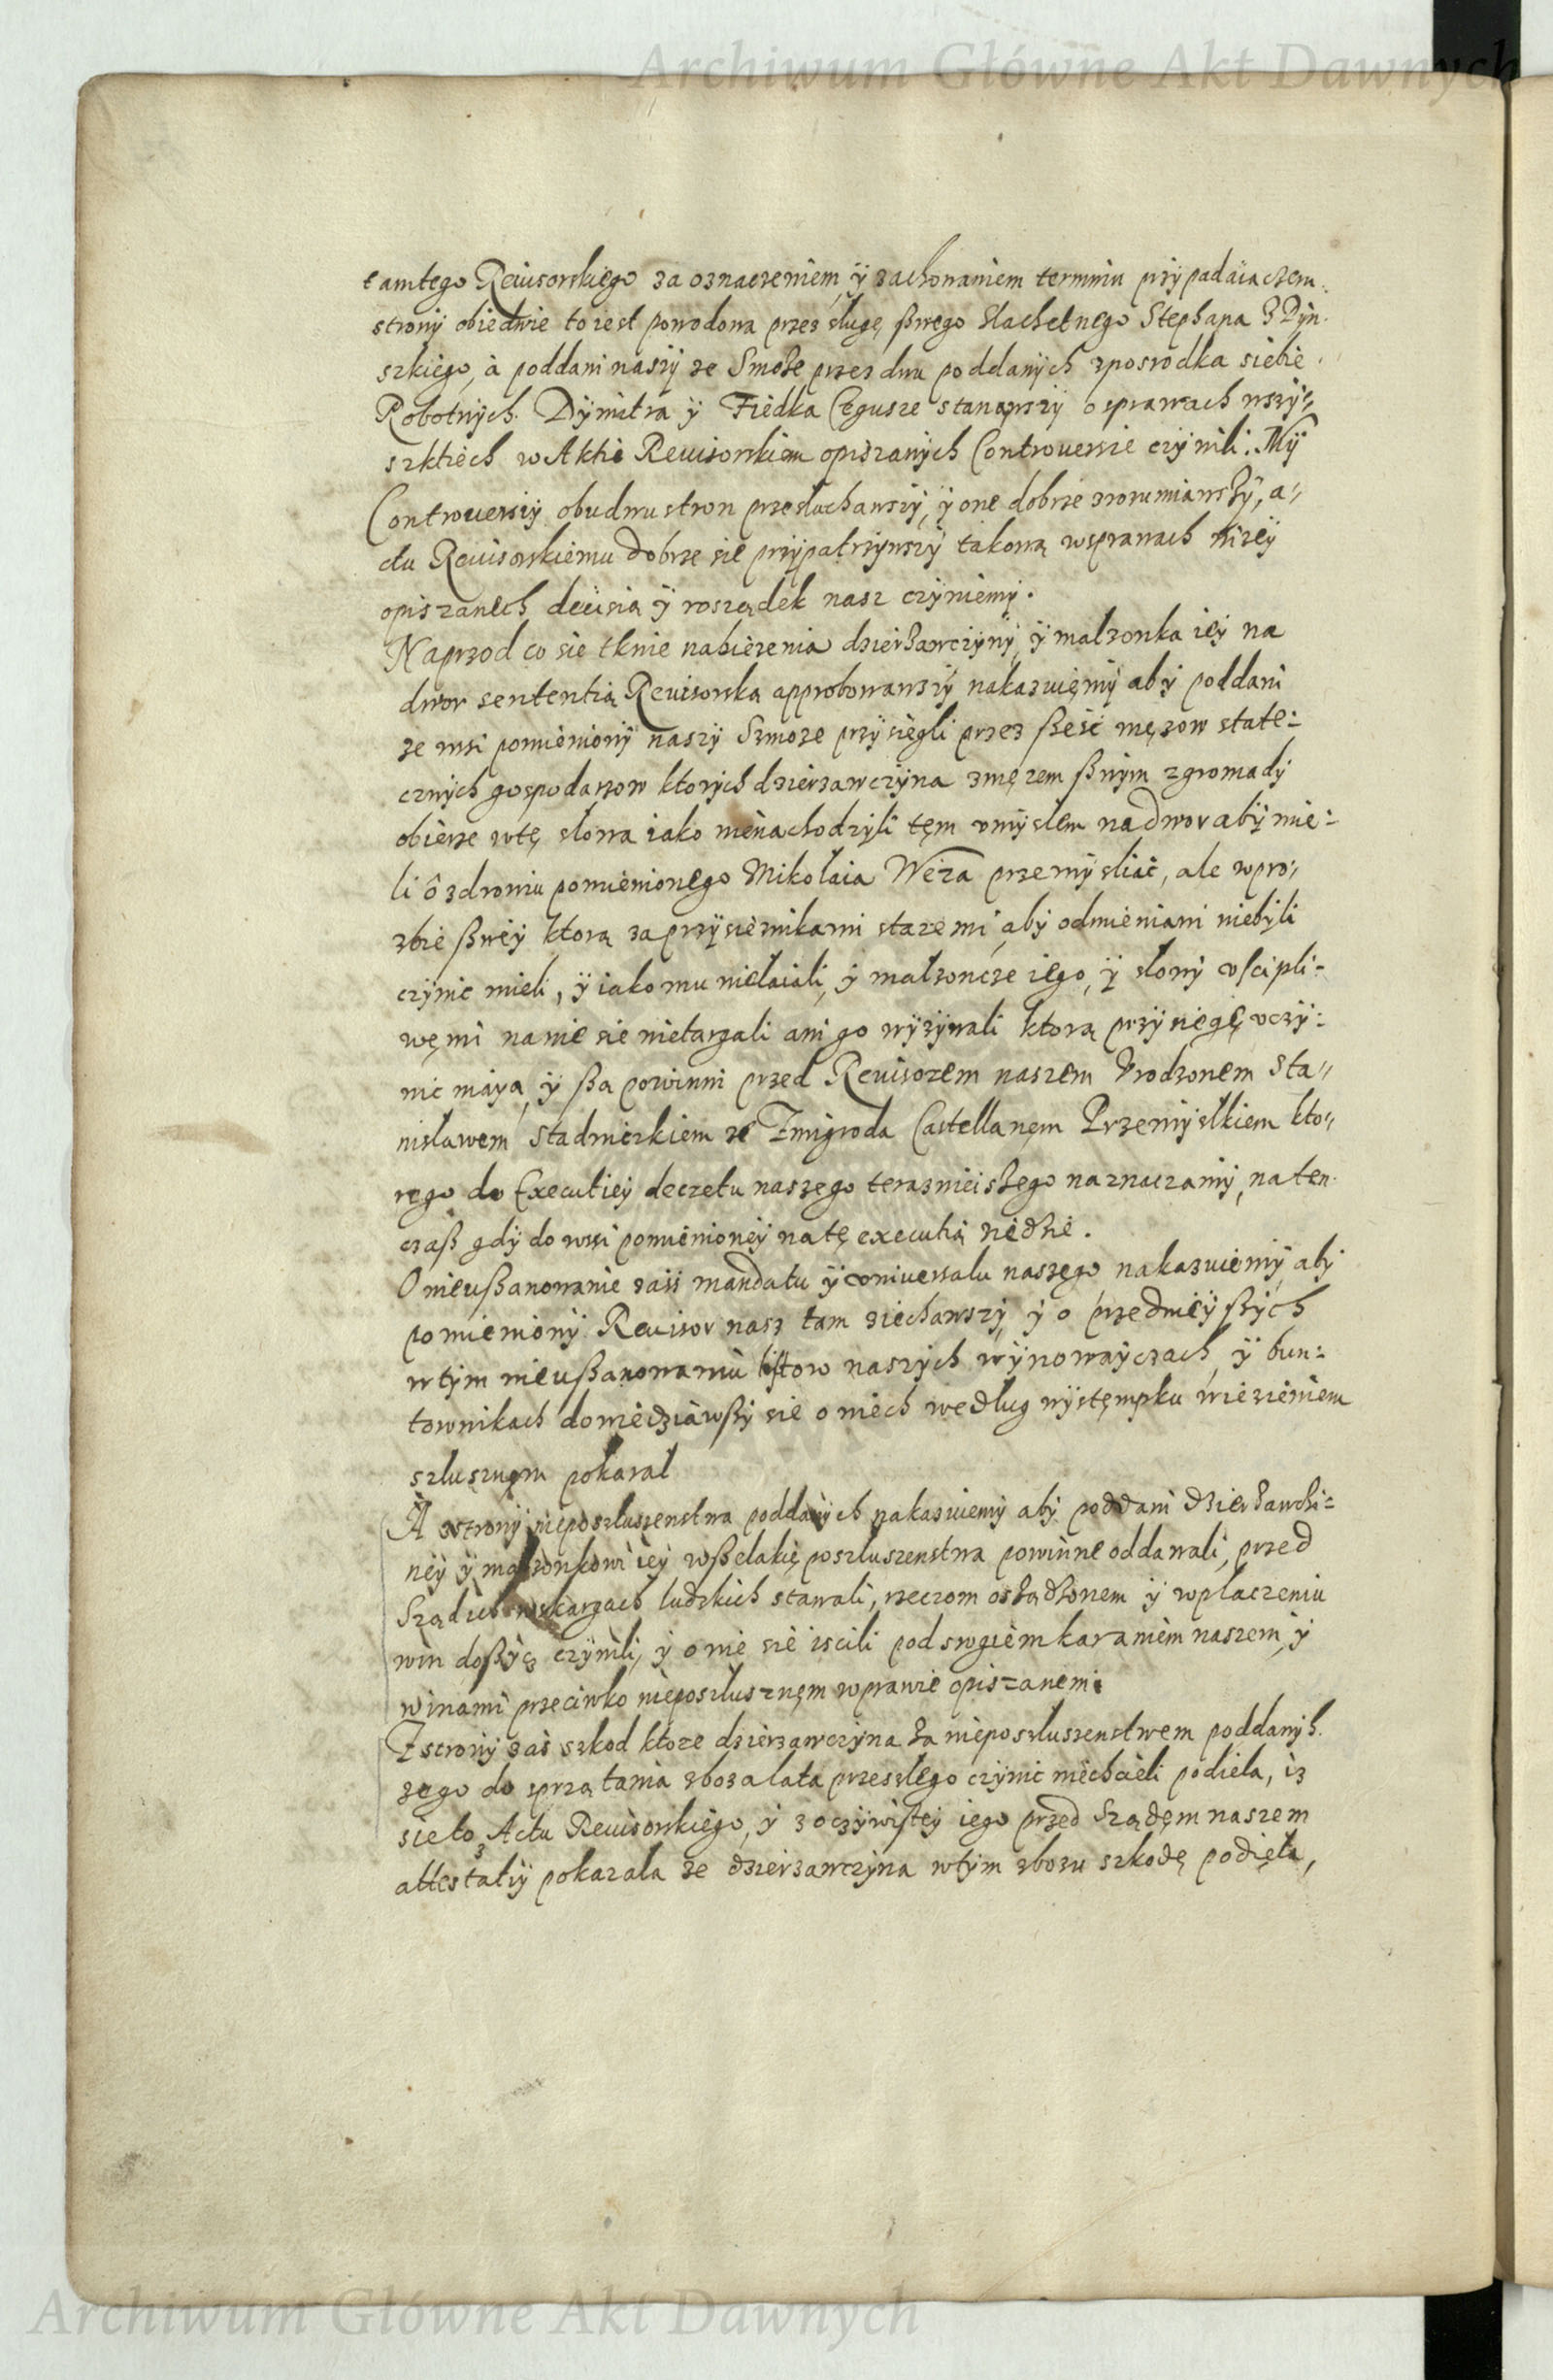 Archiwum Główne Akt Dawnych
tamtego Reuisorskiego za oznaczeniem ÿ zachowaniem terminu przÿpadaiaczem
stronÿ obiedwie to iest powodowa przes sługę swego Slachetnego Stephana
szkiego, à poddani nasżÿ ze Smoże przez dwu poddanÿch zposrodka siebie
Robotnÿch Dÿmitra ÿ Fiedka stanąwszÿ o sprawach wszÿ-
sztkiech w Aktie Reuisorskiem opiszanÿch Controuersie czÿnili. Mÿ
Controuersiÿ obudwu stron przesłuchawszÿ, ÿ one dobrze zrozumiawszÿ, a-
ctu Reuisorskiemu dobrze sie przÿpatrzÿwszÿ takową wsprawach niżeÿ
opiszanech decisią ÿ rosządek nasz czÿniemÿ.
Naprzod co sie tknie nabieżenia dzierżawczÿnÿ, ÿ małzonka ieÿ na
dwor sententią Reuisorską approbowawszÿ nakazuięmÿ abÿ poddani
ze wsi pomienionÿ naszÿ Szmoże przÿsięgli przez sześć mężow state-
cznÿch gospodarzow ktorÿch dzierzawczÿna zmężem swÿm zgromadÿ
obierze wtę słowa iako nienachodzÿli tęm vmÿslem nadwor abÿ mie-
li ô zdrowiu pomienionego Mikołaia Węża przemÿsliać, ale wpro-
zbie sweÿ ktorą za przÿsieżnikami staremi abÿ odmieniani niebÿli
czÿnic mieli, ÿ iako mu niełaiali, ÿ małzoncze iego, ÿ słowÿ vsczipli-
węmi na nie sie nietargali ani go wÿzÿwali ktorą przÿsięgę vczÿ-
nic maÿą, ÿ są powinni przed Reuisorem naszem Vrodzonem Sta-
nisławem Stadniczkiem ze Zmigroda Castellanęm Przemÿslkiem kto-
rego do Executieÿ decretu naszego teraznieiszego naznaczamÿ, na ten
czas gdÿ do wsi pomienioneÿ na tę executią
O nieuszanowanie zaś mandatu ÿ vniuersalu naszego nakazuiemÿ abÿ
pomienionÿ Reuisor nasz tam ziechawszÿ ÿ o przednieÿszÿch
w tÿm nieuszanowaniu listow naszÿch wÿnowaÿczach ÿ bun-
townikach dowiedziawszÿ sie o niech według wÿstęmpku więzieniem
szlusznęm pokarał
A zstronÿ nieposzluszenstwa poddanÿch nakazuiemÿ abÿ poddani dzierżawczi-
neÿ ÿ małżonkowi ieÿ wszelakię poszluszenstwa powinne oddawali, przed
Sządich wskargach ludzkich stawali, rzeczom osządzonem ÿ wpłaczeniu
win doszÿcz czÿnili, ÿ o nie sie iscili pod srogiem karaniem naszem, ÿ
winami przeciwko nieposzlusznęm wprawie opiszanemi
Z stronÿ zaś szkod ktore dzierzawczÿna za nieposzluszenstwem poddanÿch
żego do sprzątania zboża lata przeszlego czÿnic niechcieli podieła, iż
sie to z Actu Reuisorskiego, ÿ z oczÿwisteÿ iego przed Sządęm naszem
attestatiÿ pokazala że dzierzawczÿna wtÿm zbożu szkodę podięła,
Archiwum Główne Akt Dawnych